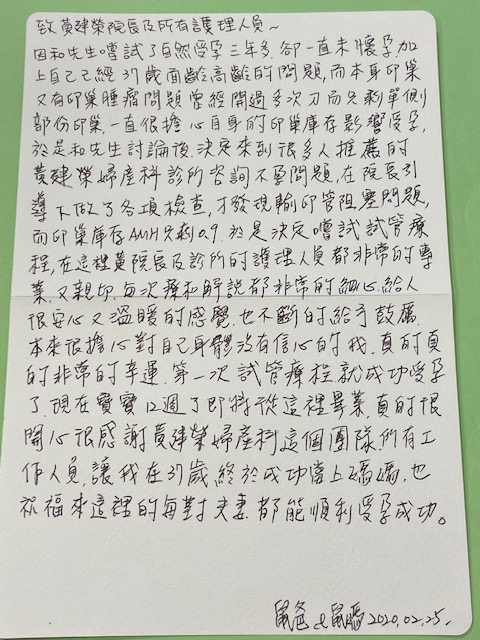 致黃建榮院長及所有護理人員~
因和先生嚐試了自然受孕三年多,卻一直未懷孕,加
上自己已經37歲面齡高齡的問題,而本身卵巢
又有卵巢腫瘤問題曾經開過多次刀而只剩單側
部份卵巢,一直很擔心自身的卵巢庫存影響受孕,
於是和先生討論後,決定來到很多人推薦的
黃建榮婦產科診所咨詢不孕問題,在院長引
導下做了各項檢查,才發現輸卵管阻塞問題,
而卵巢庫存AMH只剩0.9.於是決定嚐試試管療
程,在這裡黃院長及診所的護理人員都非常的專
業.又親切.每次療和解說都非常的細心給人
很安心又溫暖的感覺.也不斷的給予鼓厲.
本來很擔心對自己身體沒有信心的我.真的真
的非常的幸運.第一次試管療程就成功受孕
了.現在寶寶12週了即將從這裡畢業.真的很
開心很感謝黃建榮婦產科這個團隊所有工
作人員,讓我在37歲.終於成功當上媽媽.也
祝福來這裡的每對夫妻.都能順利受孕成功。
鼠爸&鼠媽 2020.02.25.